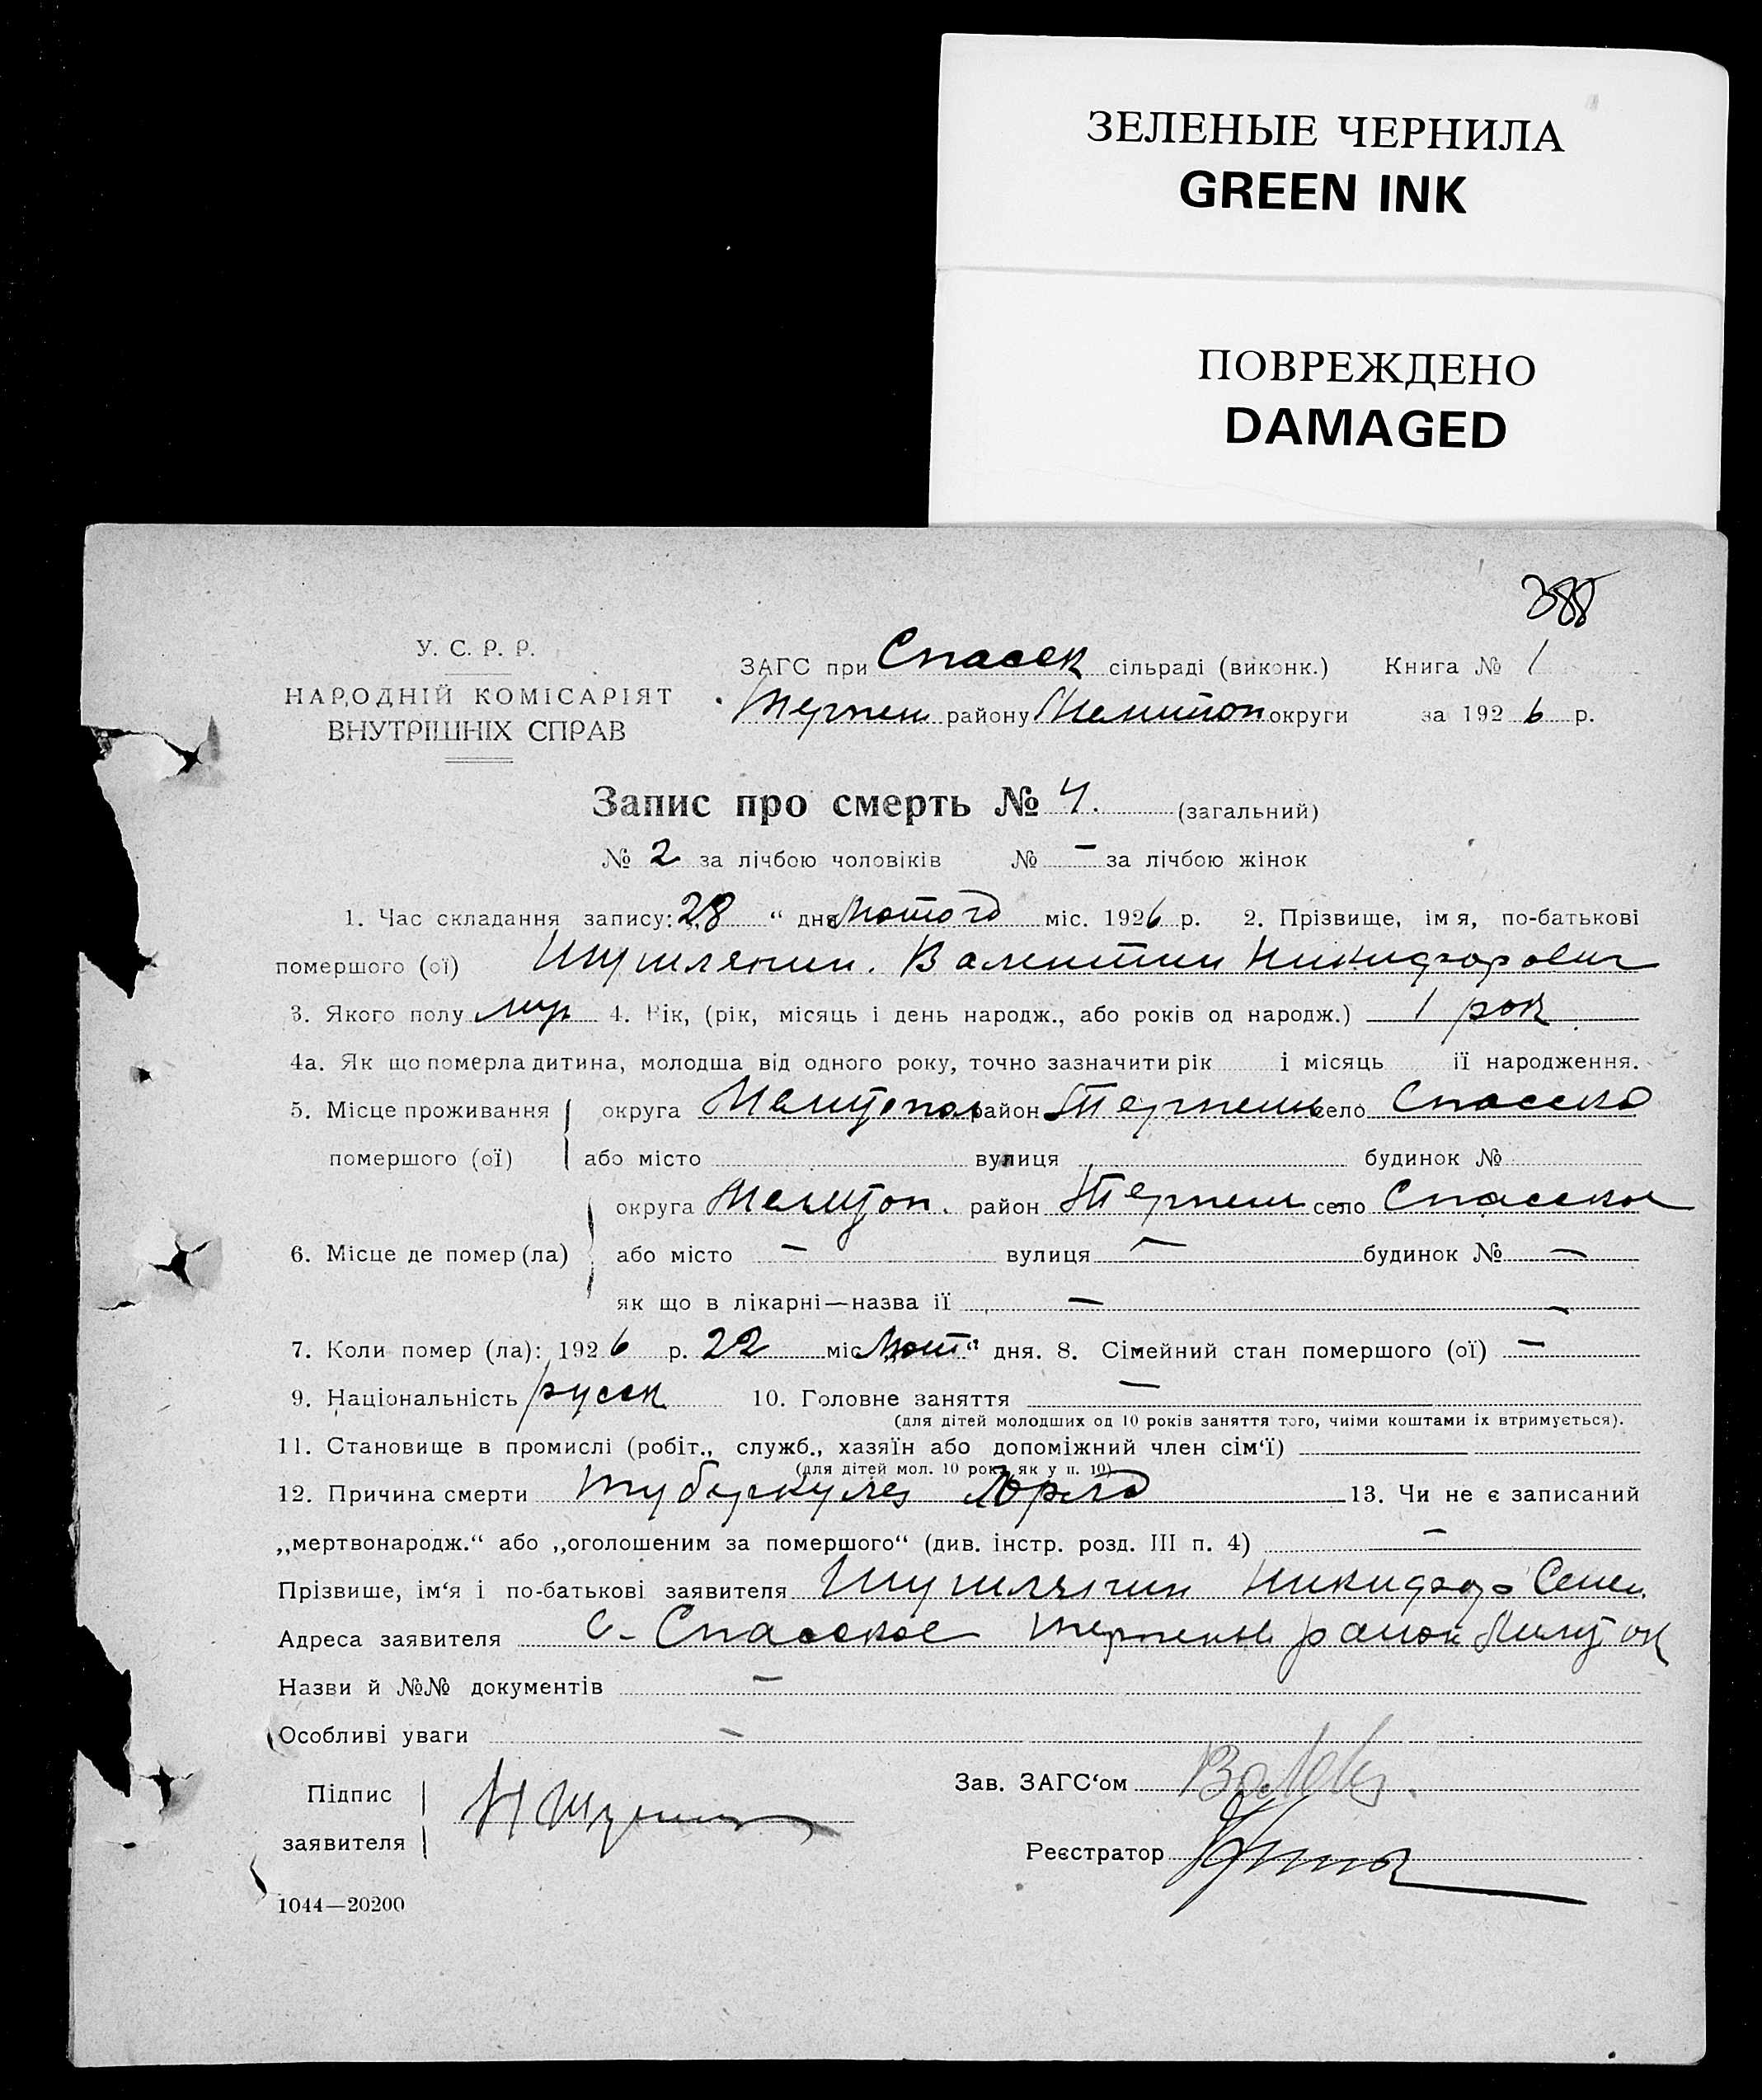 ЗЕЛЕНЫЕ ЧЕРНИЛА
GREEN INK
ПОВРЕЖДЕНО
DAMAGED
388
У. С. Р. Р.
НАРОДНІЙ КОМІСАРІЯТ
ВНУТРІШНІХ СПРАВ
ЗАГС при Спасск сільраді (виконк.) Книга № 1
Терпен району Мелитоп округи за 1926 р.
Запис про смерть № 4. (загальний)
№ 2 за лічбою чоловіків № — за лічбою жінок
1. Час складання запису: „28“ дня Лютого міс. 1926 р. 2. Прізвище, імя, по-батькові
помершого (ої) Шушлянин. Валентин Никифорович
3. Якого полу муж 4. Вік, (рік, місяць і день народж., або років од народж.) 1 рок
4а. Як що померла дитина, молодша від одного року, точно зазначити рік і місяць її народження.
5. Місце проживання округа Мелитопол район Терпени село Спасско
помершого (ої) або місто вулиця будинок №
округа Мелитоп. район Терпени село Спасское
6. Місце де помер (ла) або місто — вулиця — будинок № —
як що в лікарні—назва її — —
7. Коли помер (ла): 1926 р. 22 міс „Лют“ дня. 8. Сімейний стан помершого (ої) —
9. Національність русск 10. Головне заняття —
(для дітей молодших од 10 років заняття того, чиїми коштами їх втримується).
11. Становище в промислі (робіт., служб., хазяїн або допоміжний член сім‘ї)
(для дітей мол. 10 рок. як у п. 10)
12. Причина смерти туберкулез Горла 13. Чи не є записаний
„мертвонародж.“ або „оголошеним за помершого“ (див. інстр. розд. III п. 4) —
Прізвише, ім‘я і по-батькові заявителя Шушлянин Никифор Семен.
Адреса заявителя с. Спасское Терпенов район
Назви й №№ документів —
Особливі уваги —
Підпис
заявителя
Зав. ЗАГС‘ом
Реєстратор
1044—20200